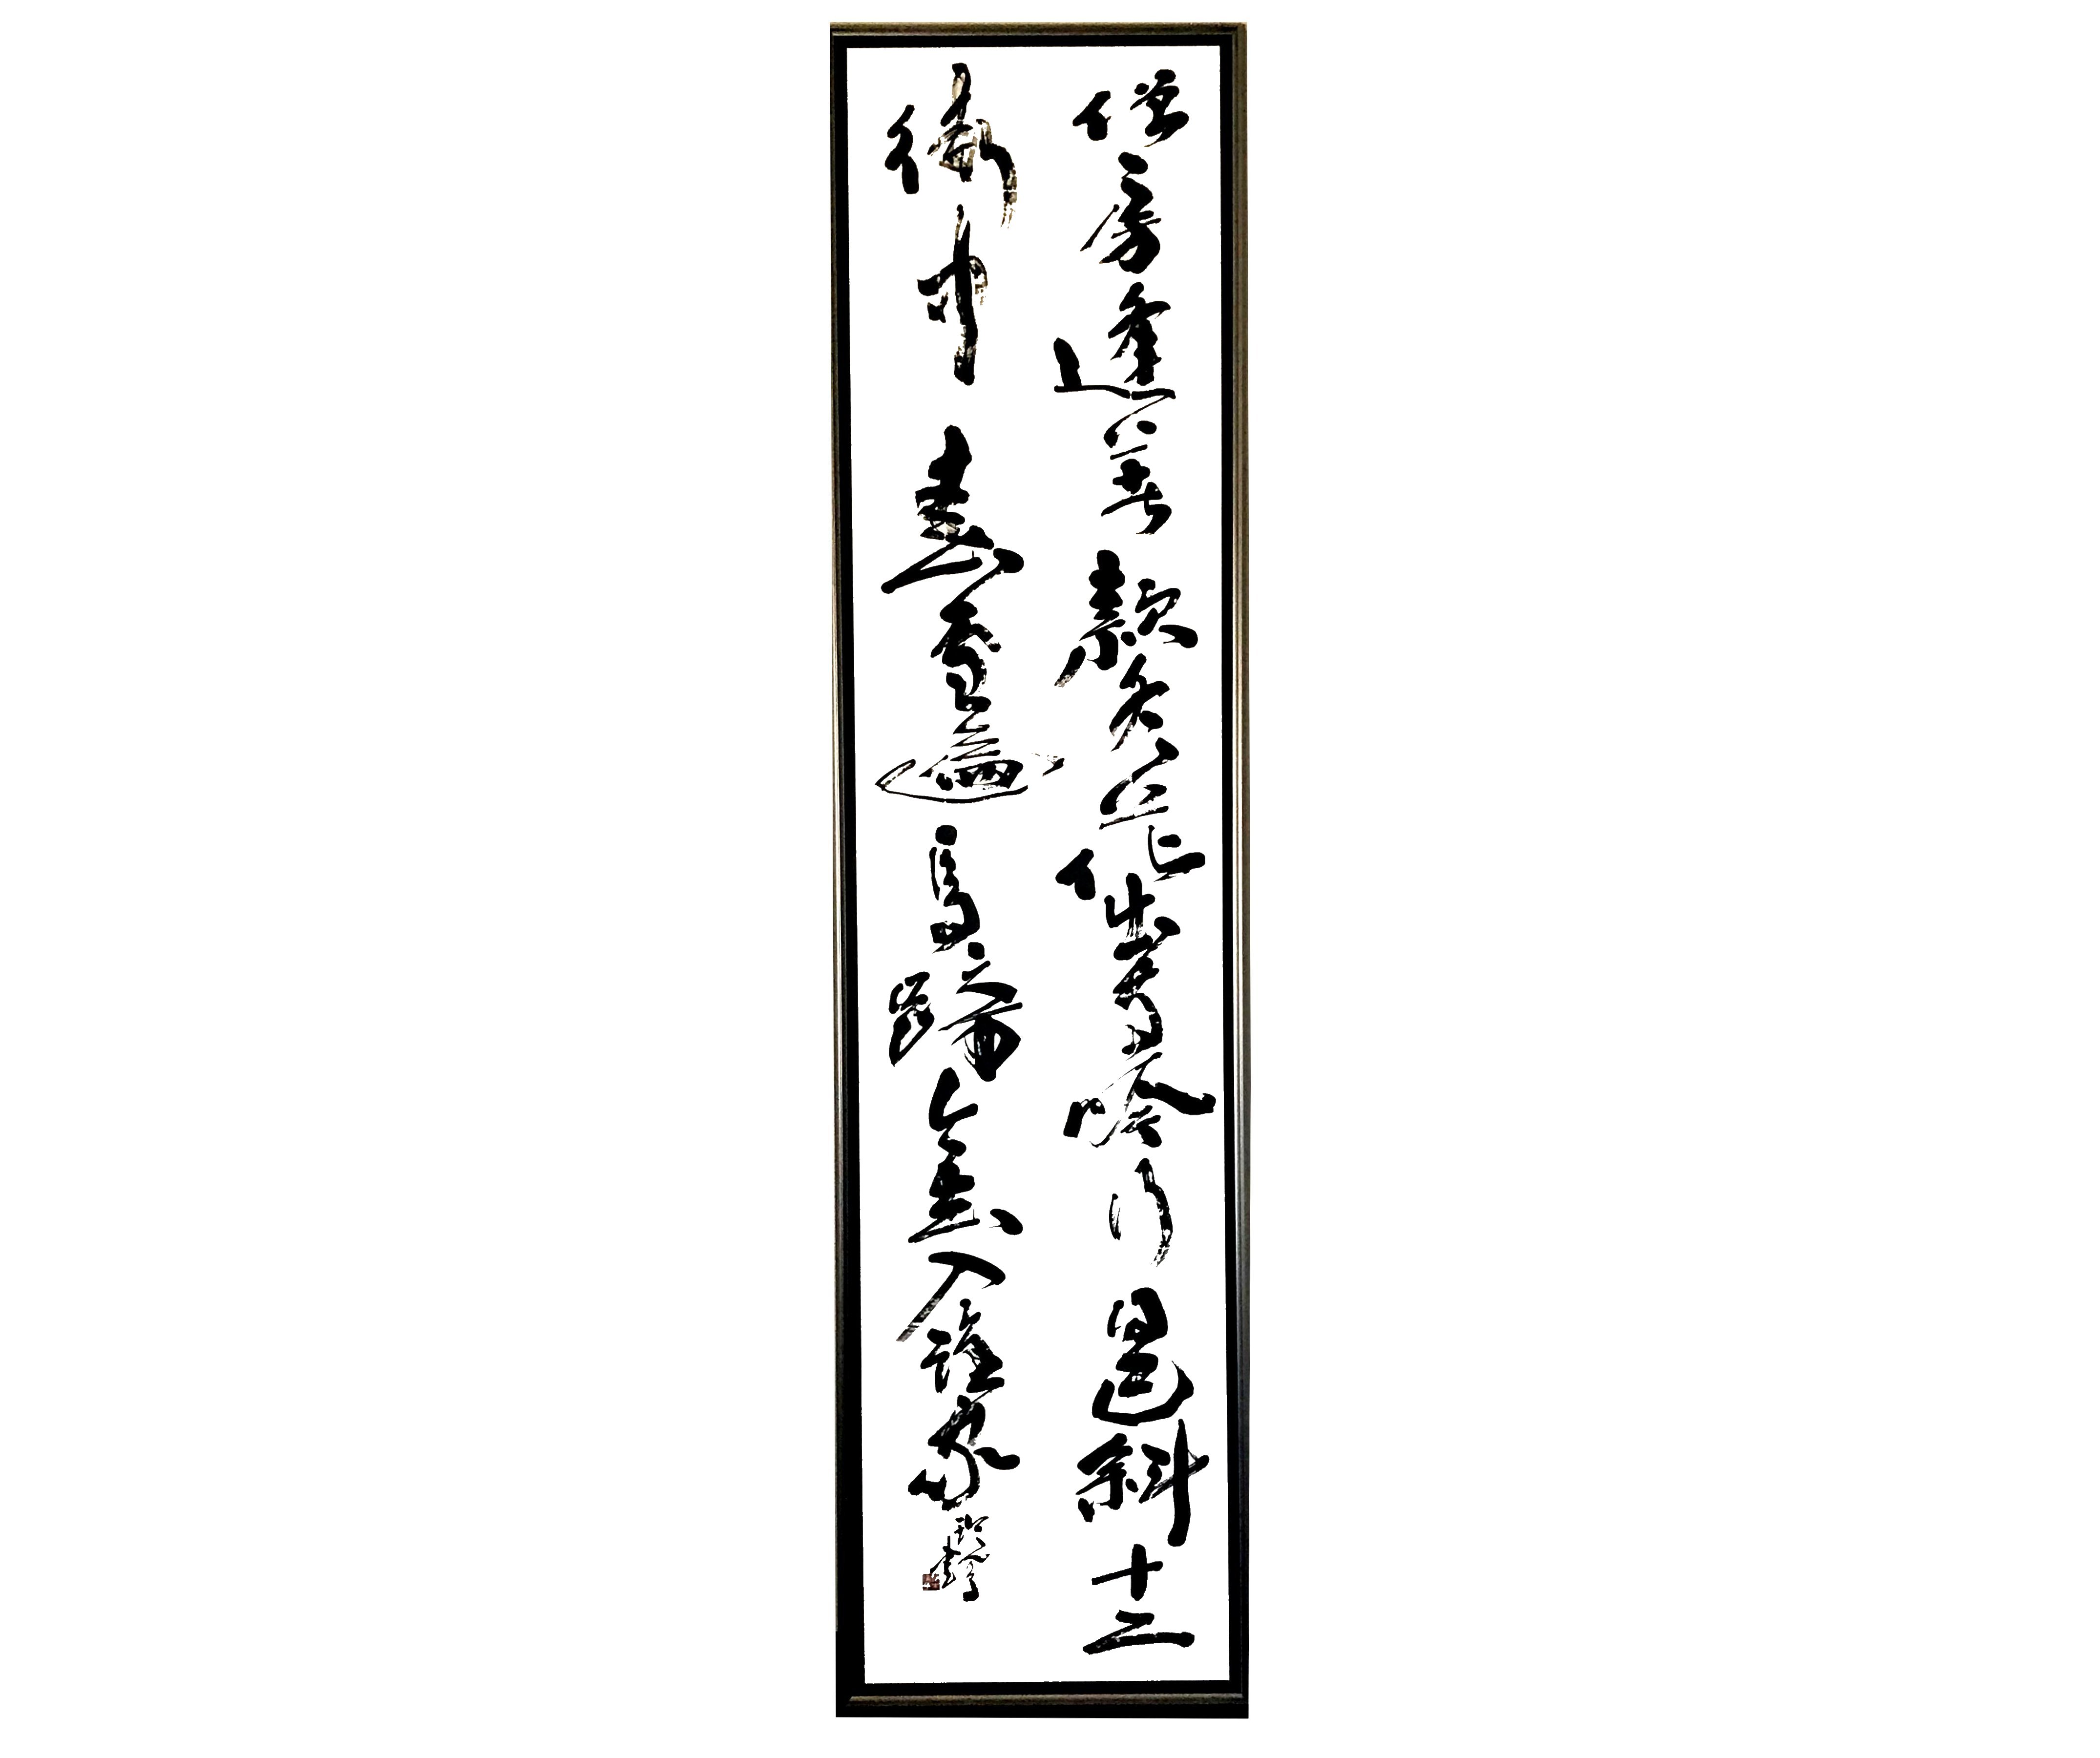 僧房逢著款冬花出寺吟行日已斜十二
街中春雪遍馬蹄今去入誰家